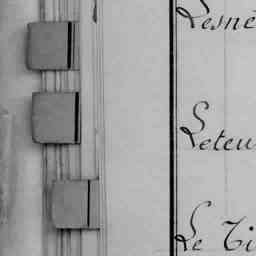 Lesné
Leteu
Le Ti